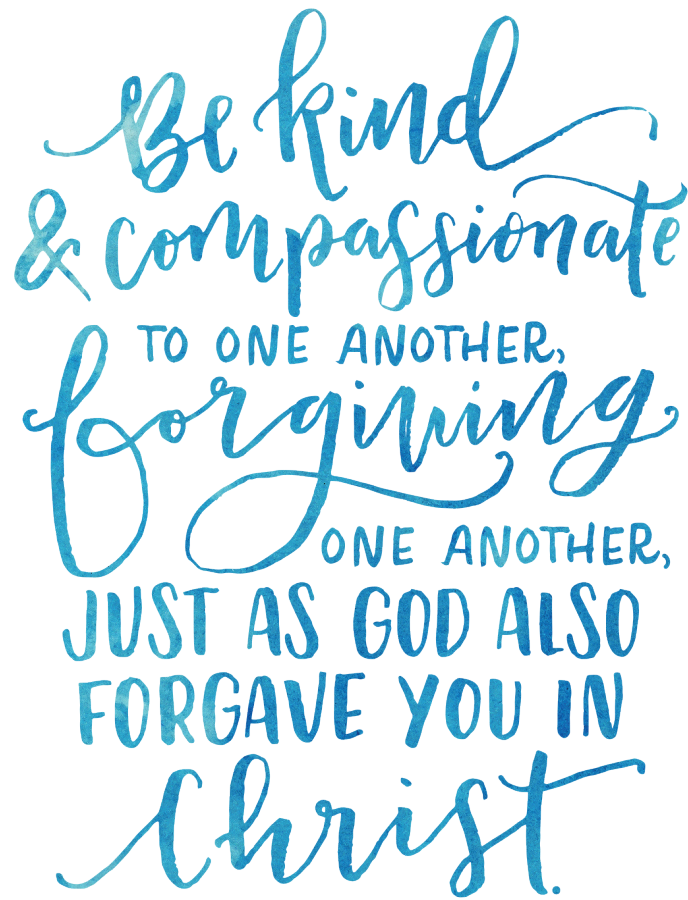 Be kind
& compassionate
TO ONE ANOTHER,
forgiving
ONE ANOTHER,
JUST AS GOD ALSO
FORGAVE YOU IN
Christ.